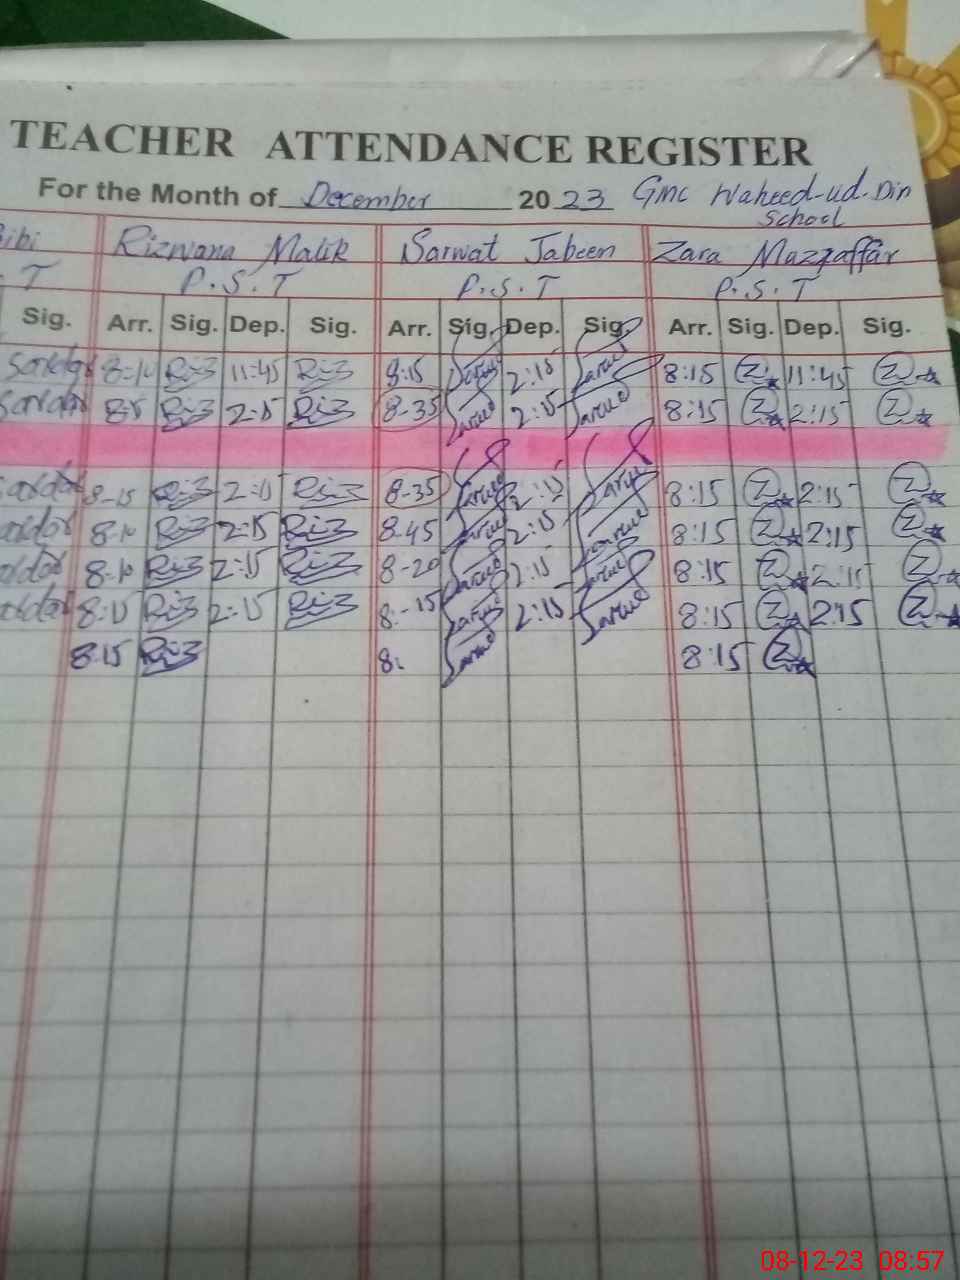 TEACHER ATTENDANCE REGISTER
For the Month of December 2023 GMC Waheed-ud-Din
School
Bibi Rizwana Malik Sarwat Jabeen Zara Mazzaffar
T P.S.T P.S.T P.S.T
Sig. Arr. Sig. Dep. Sig. Arr. Sig. Dep. Sig. Arr. Sig. Dep. Sig.
8:10 Riz 11:45 Riz 8:15 Sarwat 2:15 Sarwat 8:15 Z 11:45 Z
Riz 2:15 Riz 8-35 Sarwat 2:15 Sarwat 8:15 Z 2:15 Z
8-15 Riz 2:15 Riz 8-35 Sarwat 2:15 Sarwat 8:15 Z 2:15 Z
8-10 Riz 2:15 Riz 8-45 Sarwat 2:15 Sarwat 8:15 Z 2:15 Z
8-10 Riz 2:15 Riz 8-20 Sarwat 2:15 Sarwat 8:15 Z 2:15 Z
8:15 Riz 2:15 Riz 8:-15 Sarwat 2:15 Sarwat 8:15 Z 2:15 Z
8:15 Riz 8: Sarwat 8:15 Z
08-12-23 08:57